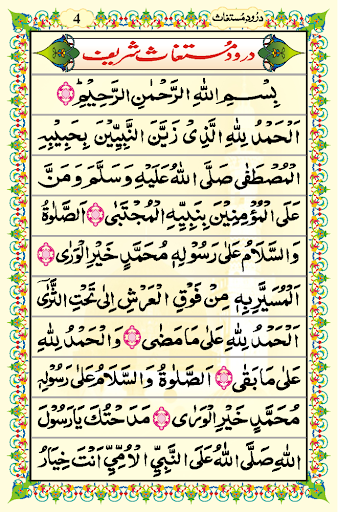 4 درُود مُستغاث
درود مُستغاث شریف
بِسْمِ اللهِ الرَّحْمٰنِ الرَّحِيْمِ
اَلْحَمْدُ لِلّٰهِ الَّذِىْ زَيَّنَ النَّبِيِّيْنَ بِحَبِيْبِهِ
الْمُصْطَفٰى صَلَّى اللهُ عَلَيْهِ وَسَلَّمَ وَمَنَّ
عَلَى الْمُؤْمِنِيْنَ بِنَبِيِّهِ الْمُجْتَبٰى اَلصَّلٰوةُ
وَالسَّلَامُ عَلٰى رَسُوْلِهٖ مُحَمَّدٍ خَيْرِ الْوَرٰى
اَلْمُسَيَّرِ بِهٖ مِنْ فَوْقِ الْعَرْشِ اِلٰى تَحْتِ الثَّرٰى
اَلْحَمْدُ لِلّٰهِ عَلٰى مَا مَضٰى وَالْحَمْدُ لِلّٰهِ
عَلٰى مَا بَقٰى اَلصَّلٰوةُ وَالسَّلَامُ عَلٰى رَسُوْلِهٖ
مُحَمَّدٍ خَيْرِ الْوَرٰى مَدَحْتُكَ يَا رَسُوْلَ
اللهِ صَلَّى اللهُ عَلَى النَّبِيِّ الْاُمِّيِّ اَنْتَ خِيَارُ